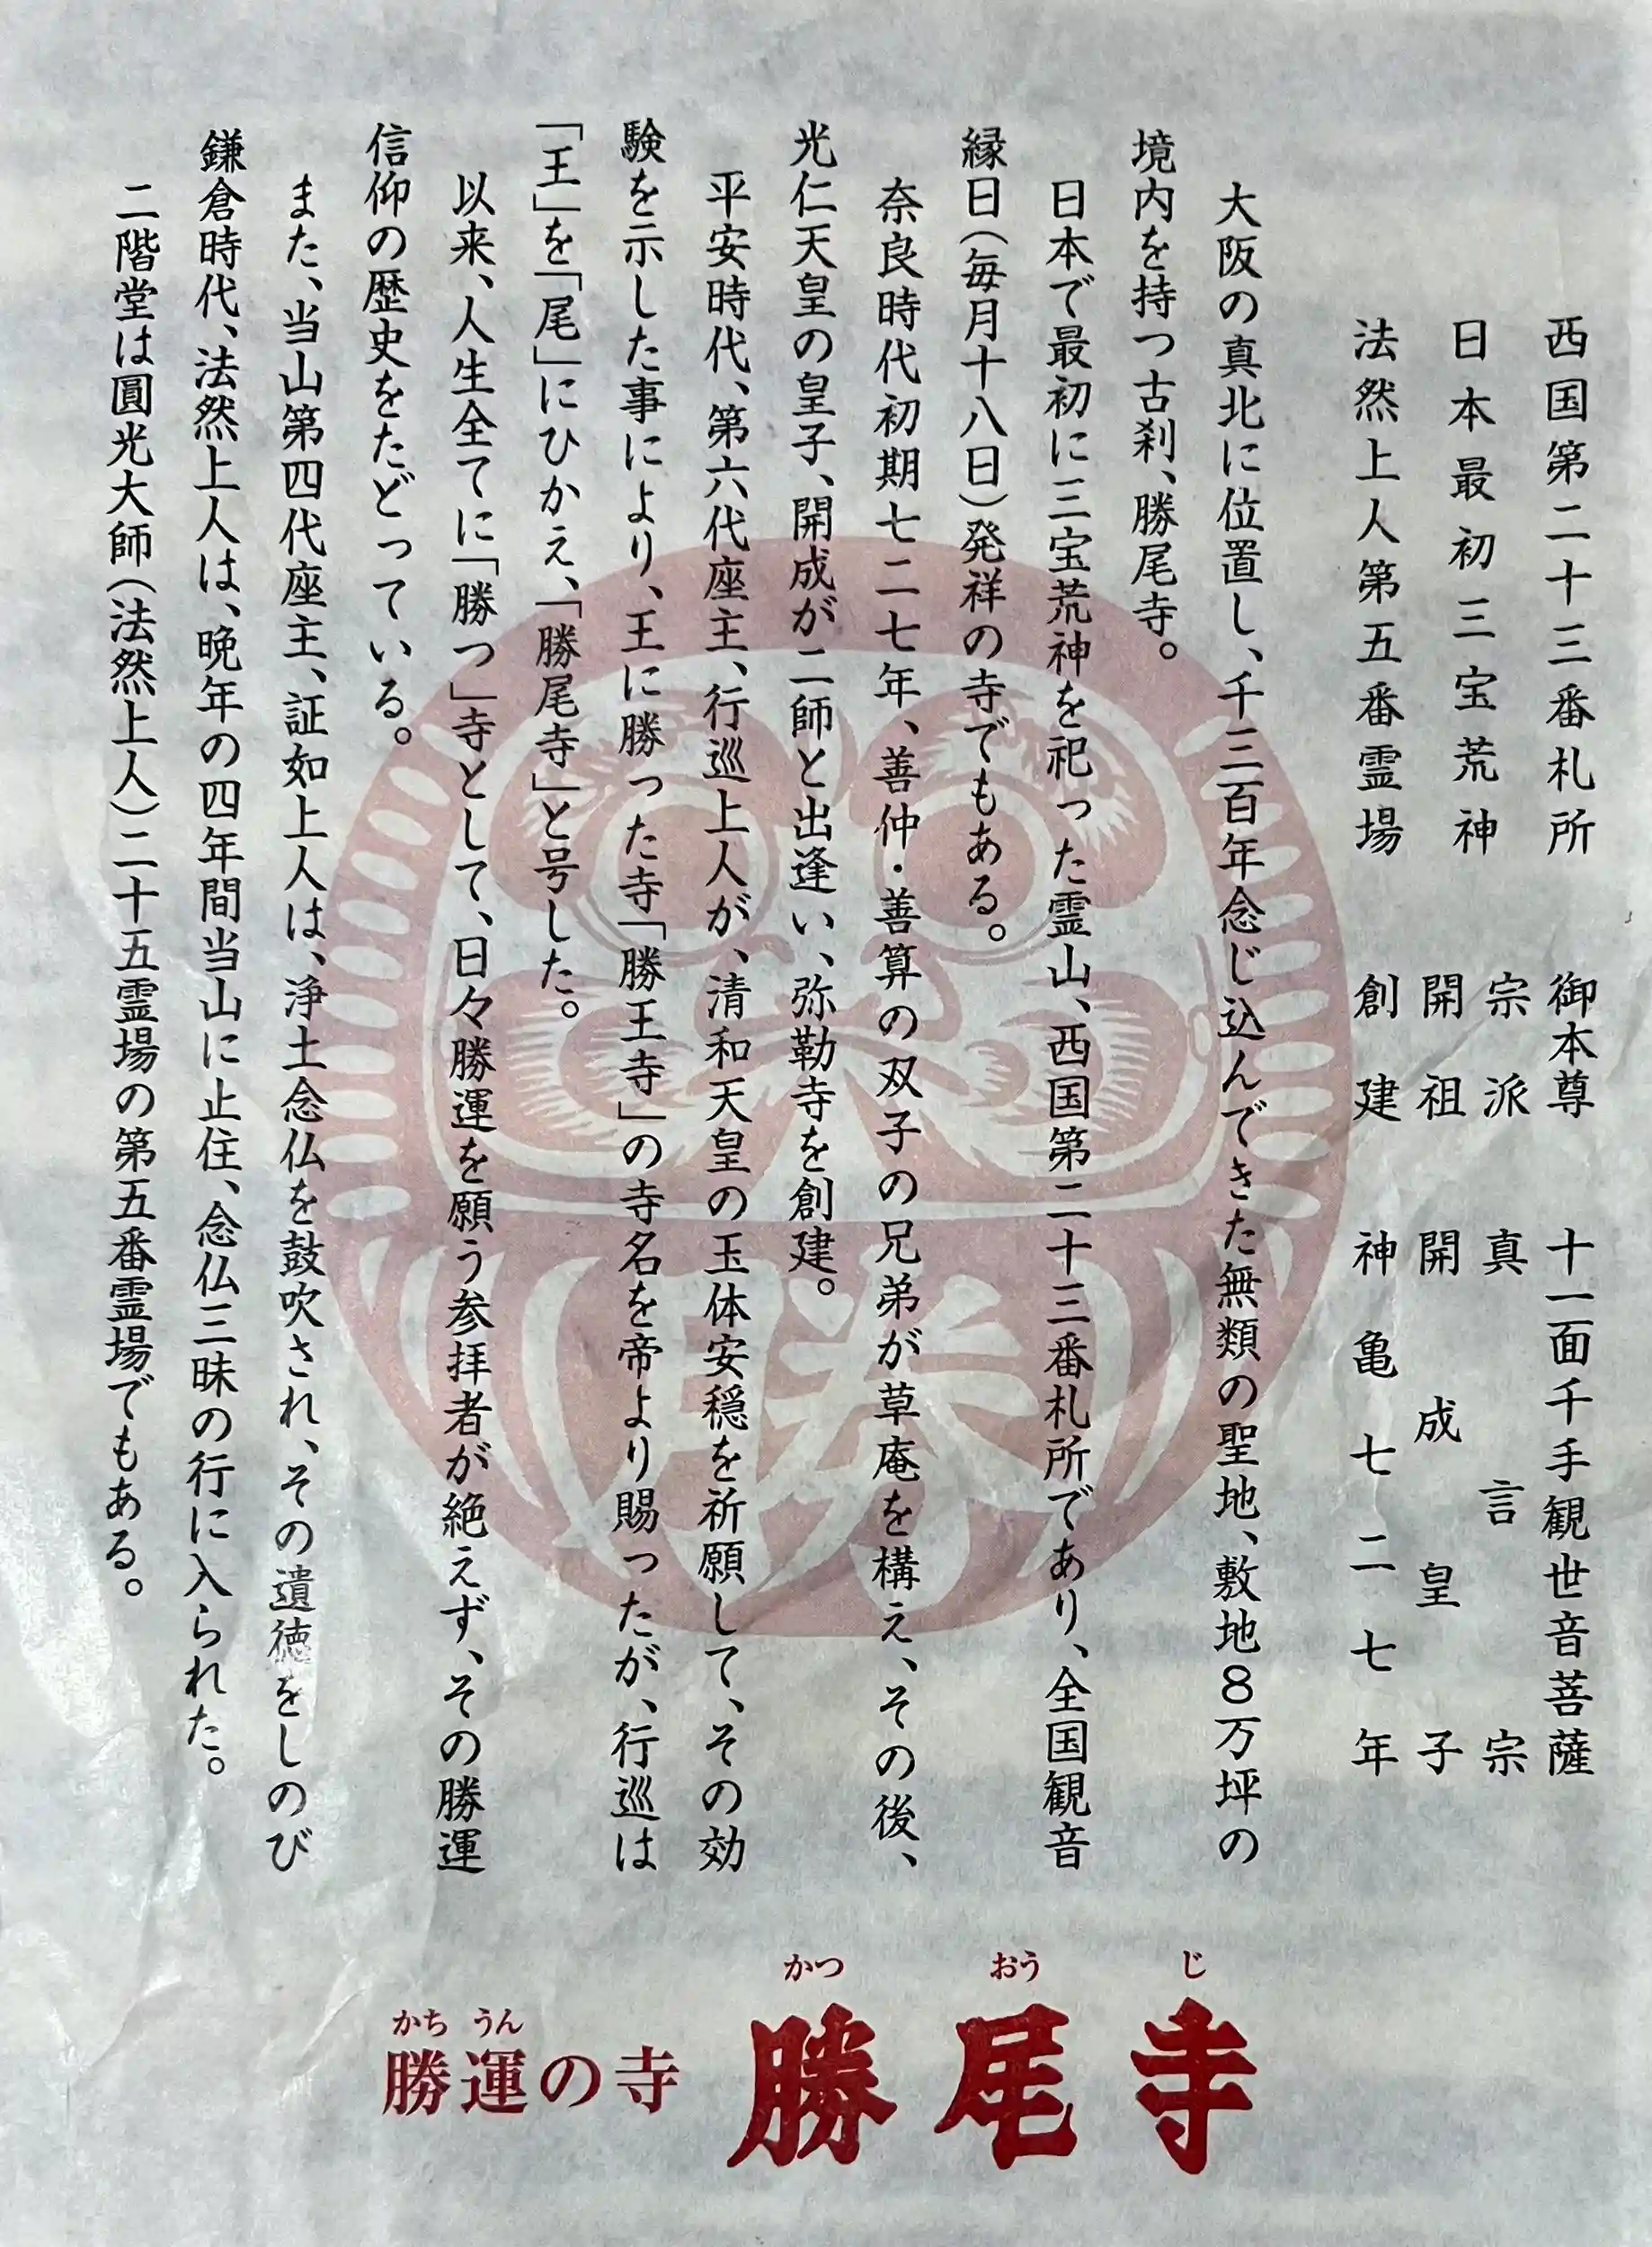 西国第二十三番札所
日本最初三宝荒神
法然上人第五番霊場
御本尊 十一面千手観世音菩薩
宗派 真言宗
開祖 開成皇子
創建 神亀七二七年
大阪の真北に位置し、千三百年念じ込んできた無類の聖地、敷地8万坪の
境内を持つ古刹、勝尾寺。
日本で最初に三宝荒神を祀った霊山、西国第二十三番札所であり、全国観音
縁日(毎月十八日)発祥の寺でもある。
奈良時代初期七二七年、善仲・善算の双子の兄弟が草庵を構え、その後、
光仁天皇の皇子、開成が二師と出逢い、弥勒寺を創建。
平安時代、第六代座主、行巡上人が、清和天皇の玉体安穏を祈願して、その効
験を示した事により、王に勝った寺「勝王寺」の寺名を帝より賜ったが、行巡は
「王」を「尾」にひかえ、「勝尾寺」と号した。
以来、人生全てに「勝つ」寺として、日々勝運を願う参拝者が絶えず、その勝運
信仰の歴史をたどっている。
また、当山第四代座主、証如上人は、浄土念仏を鼓吹され、その遺徳をしのび
鎌倉時代、法然上人は、晩年の四年間当山に止住、念仏三昧の行に入られた。
二階堂は圓光大師(法然上人)二十五霊場の第五番霊場でもある。
勝
かち うん
勝運の寺
かつ おう じ
勝尾寺